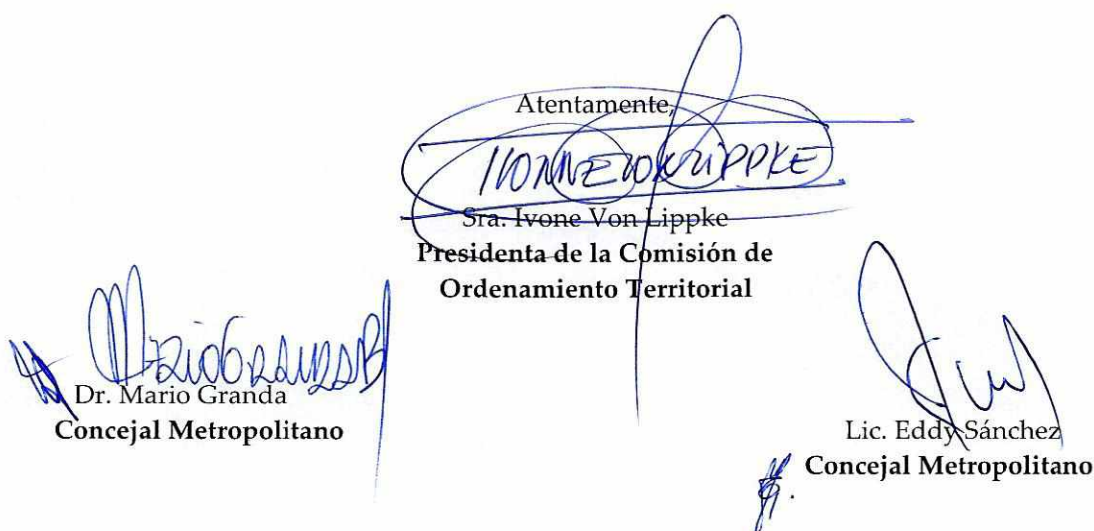 Atentamente,
IVONNE VON LIPPKE
Sra. Ivone Von Lippke
Presidenta de la Comisión de
Ordenamiento Territorial
Dr. Mario Granda
Concejal Metropolitano
Lic. Eddy Sánchez
Concejal Metropolitano